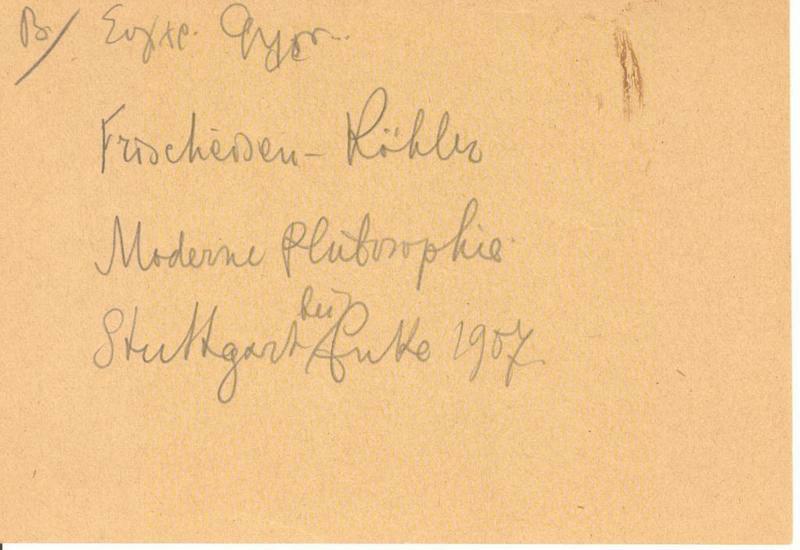 B/
Frischeisen-Köhler
Moderne Philosophie
Stuttgart bei Enke 1907